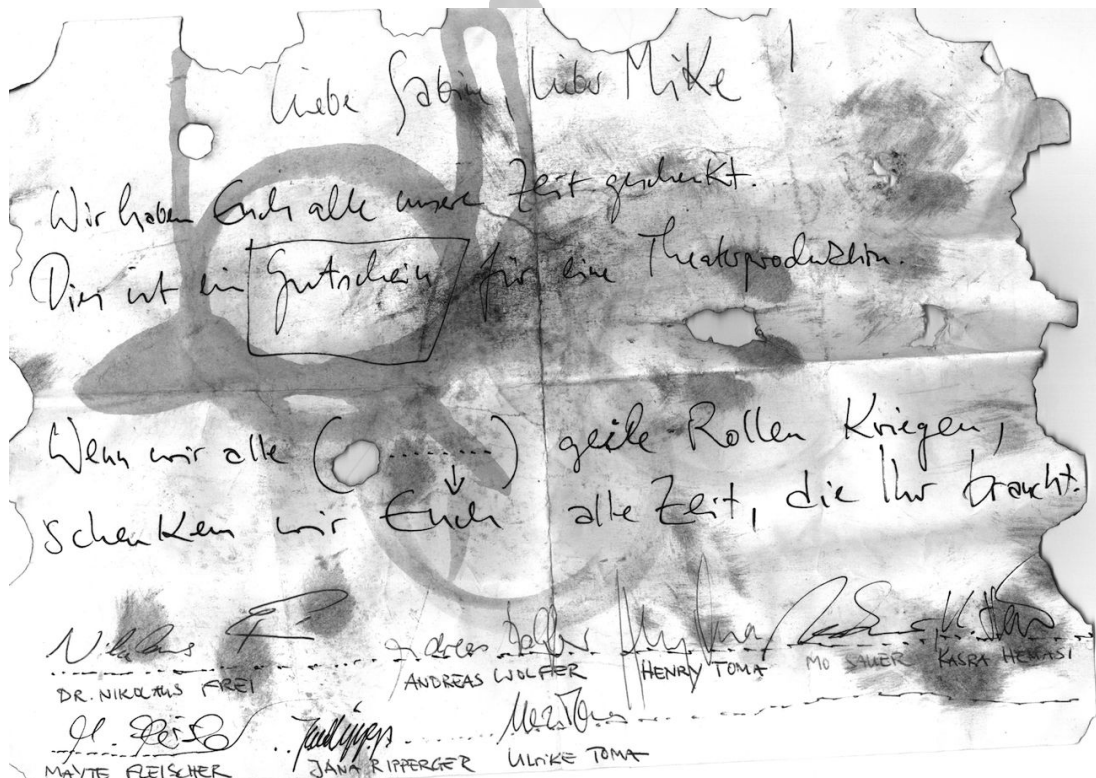 Liebe Sabine, lieber Mike!
Wir haben Euch alle unsere Zeit geschenkt.
Dies ist ein Gutschein für eine Theaterproduktion.
Wenn wir alle (..........) geile Rollen Kriegen,
schenken wir Euch alle Zeit, die Ihr braucht.
DR. NIKOLAUS FREI ANDREAS WOLFFER HENRY TOMA MO SAUER KASRA HEMASI
MAYTE FLEISCHER JANA RIPPERGER ULRIKE TOMA